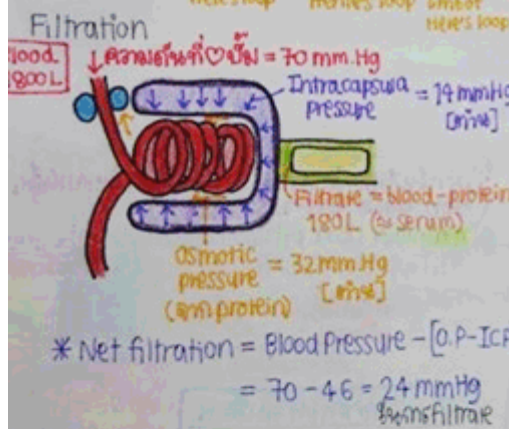 Henle's loop
Filtration
Blood
1800L
ความดันที่♡ปั๊ม = 70 mm.Hg
Intracapsula
pressure = 14 mmHg
[ต้าน]
Filtrate = blood-protein
180L (≈ serum)
Osmotic
pressure = 32 mm.Hg
(จากprotein) [ต้าน]
* Net filtration = Blood Pressure - [O.P-ICP
= 70 - 46 = 24 mmHg
ในการfiltrate